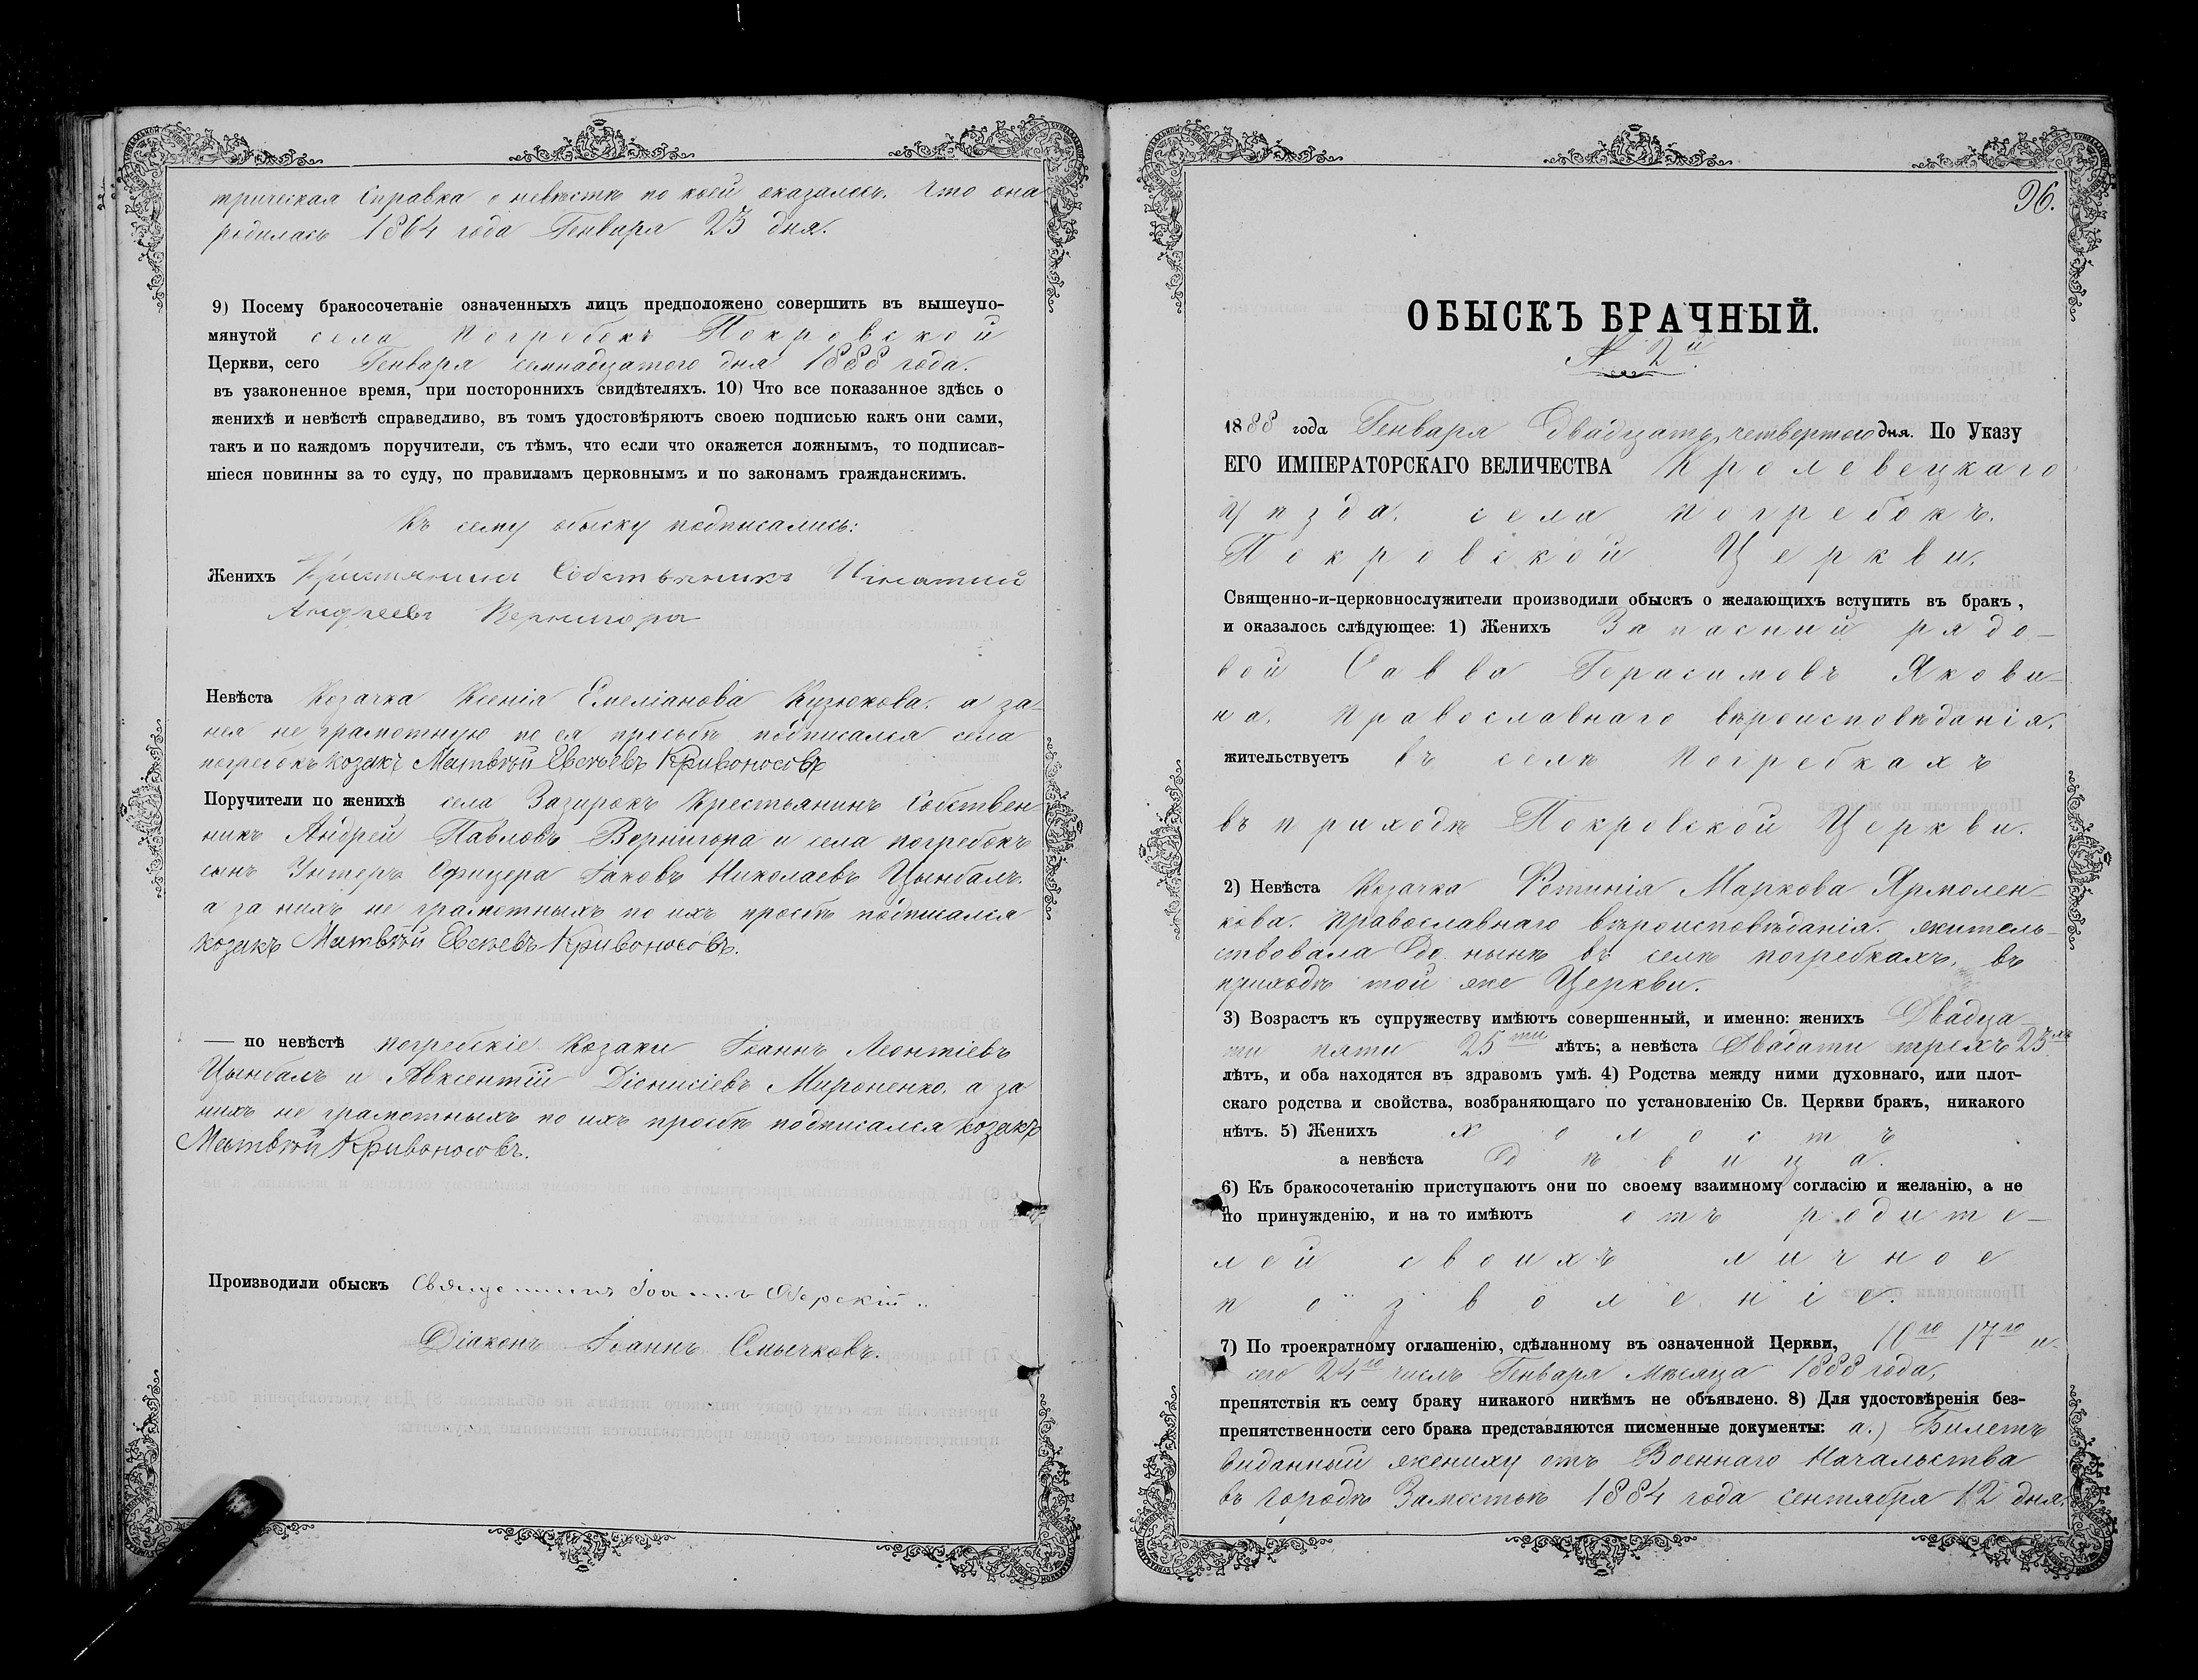 трическая справка о невѣстѣ по коей оказалось. что она
родилась 1864 года Генваря 23 дня.
9) Посему бракосочетаніе означенныхъ лицъ предположено совершить въ вышеупо-
мянутой села Погребокъ Покровской
Церкви, сего Генваря семнадцатого дня 1888 года.
въ узаконенное время, при постороннихъ свидѣтеляхъ. 10) Что все показанное здѣсь о
женихѣ и невѣстѣ справедливо, въ томъ удостовѣряютъ своею подписью какъ они сами,
такъ и по каждомъ поручители, съ тѣмъ, что если что окажется ложнымъ, то подписав-
шіеся повинны за то суду, по правиламъ церковнымъ и по законамъ гражданскимъ.
Къ сему обыску подписались:
Женихъ Кристянинъ Собственикъ Игнатий
Андреевъ Вернигора
Невѣста Козачка Ксенія Емеліанова Кузюкова. а за
нея не грамотную по ея просьбѣ подписался села
погребокъ козакъ Матвѣй Евсѣевъ Кривоносовъ
Поручители по женихѣ села Зазирокъ Крестьянинъ Собствен-
никъ Андрей Павловъ Вернигора и села погребокъ
сынъ Унтеръ Офицера Іаковъ Николаевъ Цынбалъ.
а за нихъ не грамотныхъ по ихъ просьбѣ подписался
козакъ Матвѣй Евсѣевъ Кривоносовъ.
— по невѣстѣ погребскіе козаки Іоаннъ Леонтіевъ
Цынбалъ и Авксентій Діонисіевъ Мироненко. а за
нихъ не грамотныхъ по ихъ просьбѣ подписался козакъ
Матвѣй Кривоносовъ.
Производили обыскъ Священникъ Іоаннъ
Діаконъ Іоаннъ Смычковъ.
96.
ОБЫСКЪ БРАЧНЫЙ.
№ 2й.
1888 года Генваря Двадцать четвертого дня. По Указу
ЕГО ИМПЕРАТОРСКАГО ВЕЛИЧЕСТВА Кролевецкаго
уѣзда. села Погребокъ.
Покровской Церкви.
Священно-и-церковнослужители производили обыскъ о желающихъ вступить въ бракъ,
и оказалось слѣдующее: 1) Женихъ Запасний рядо-
вой Савва Герасимовъ Якови-
на. православнаго вѣроисповѣданія.
жительствуетъ въ селѣ Погребкахъ
въ приходѣ Покровской Церкви.
2) Невѣста Козачка Фотинія Маркова Ярмолен-
кова. православнаго вѣроисповѣданія. житель-
ствовала до нынѣ въ селѣ погребкахъ, въ
приходѣ той же Церкви.
3) Возрастъ къ супружеству имѣютъ совершенный, и именно: женихъ Двадца-
ти пяти 25ти лѣтъ; а невѣста Двацати трехъ 23хъ
лѣтъ, и оба находятся въ здравомъ умѣ. 4) Родства между ними духовнаго, или плот-
скаго родства и свойства, возбраняющаго по установленію Св. Церкви бракъ, никакого
нѣтъ. 5) Женихъ холостъ
а невѣста Дѣвица.
6) Къ бракосочетанію приступаютъ они по своему взаимному согласію и желанію, а не
по принужденію, и на то имѣютъ отъ родите-
лей своихъ личное
позволеніе.
7) По троекратному оглашенію, сдѣланному въ означенной Церкви, 10го 17го и
сего 24го числъ Генваря мѣсяца 1888 года,
препятствія къ сему браку никакого никѣмъ не объявлено. 8) Для удостовѣренія без-
препятственности сего брака представляются писменные документы: а.) Билетъ
виданный жениху отъ Военнаго Начальства
въ городѣ Замостьѣ 1884 года сентября 12 дня.